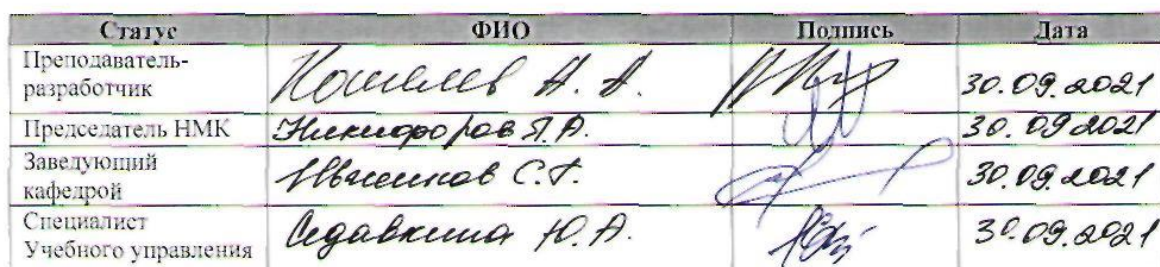 Статус ФИО Подпись Дата
Преподаватель-разработчик Кошелев А. А. 30.09.2021
Председатель НМК Никифоров Я.А. 30.09.2021
Заведующий кафедрой Ивченков С.Г. 30.09.2021
Специалист Учебного управления Седавкина Ю.А. 30.09.2021